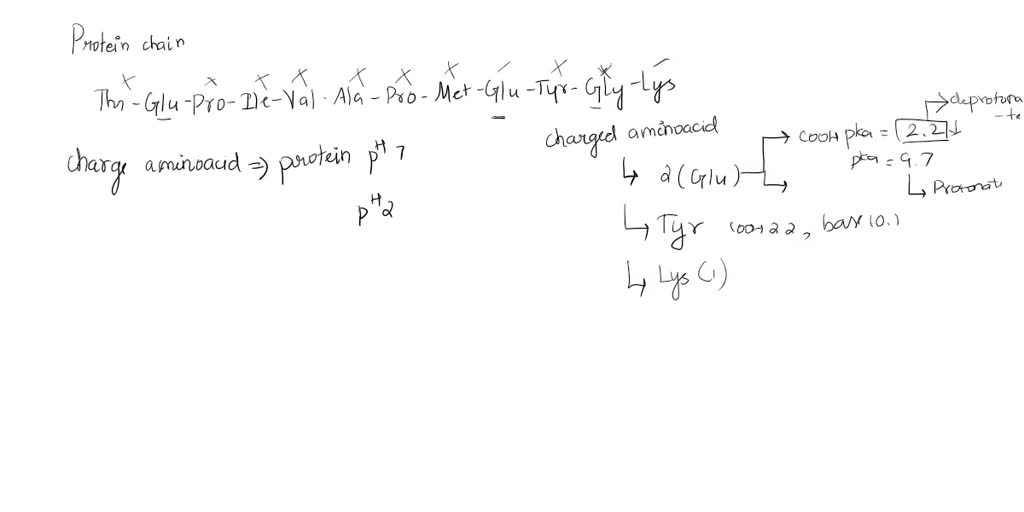 Protein chain
Thr - Glu - Pro - Ile - Val - Ala - Pro - Met - Glu - Tyr - Gly - Lys
charge aminoacid ⇒ protein pH 7
pH 2
charged aminoacid
↳ 2 (Glu) → COOH pka = 2.2 ↓ → deprotona
-te
pka = 9.7
↳ Protonate
↳ Tyr COOH 2.2, base 10.1
↳ Lys (1)